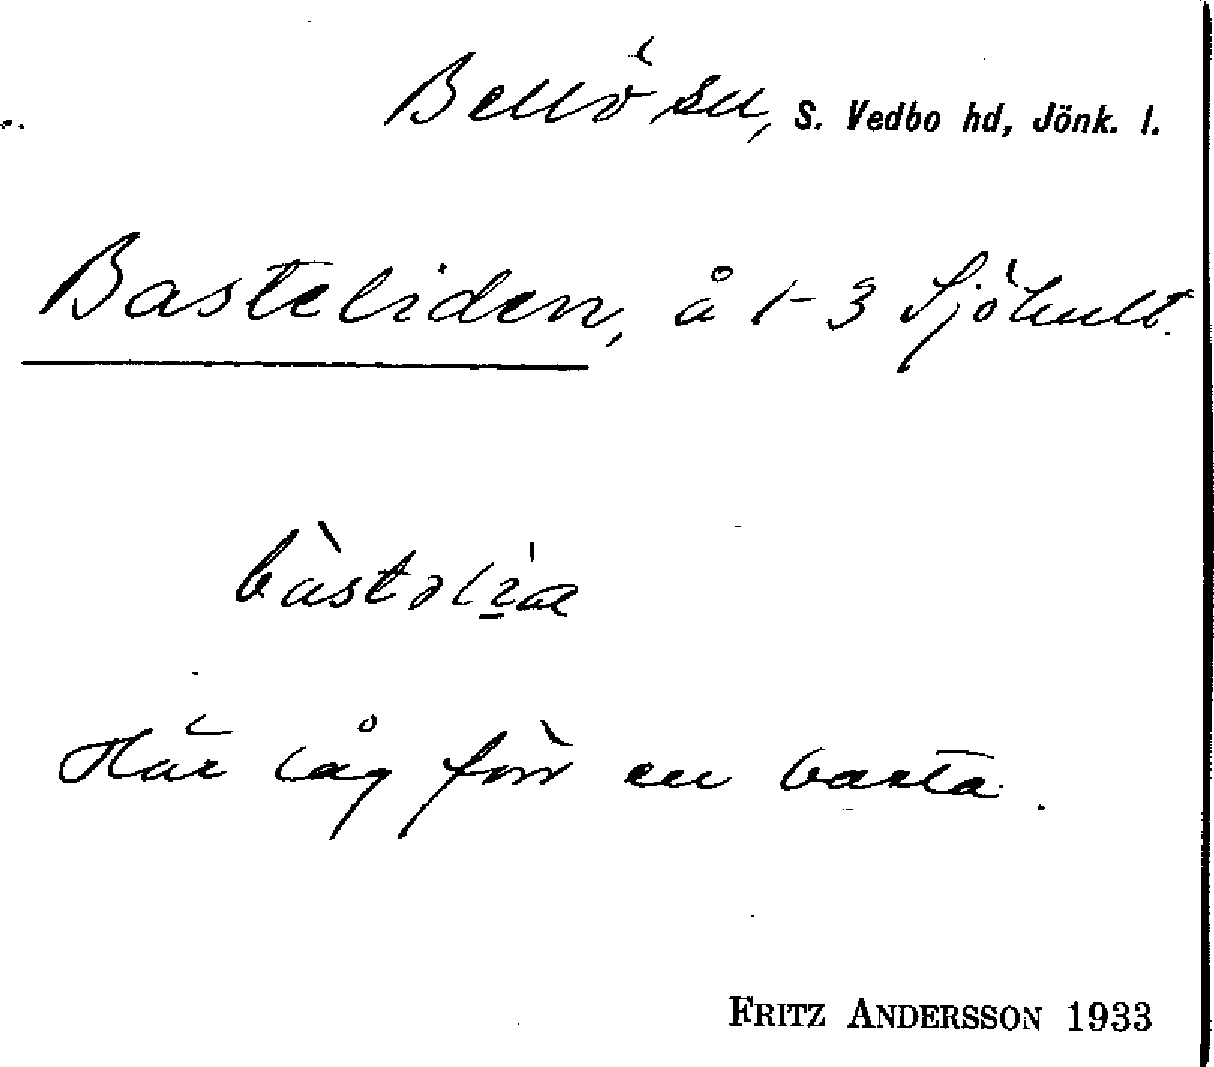 Bellö sn, S. Vedbo hd, Jönk. l.
Basteliden, å 1-3 Sjöhult.
bàstəlia
Här låg förr en basta.
FRITZ ANDERSSON 1933